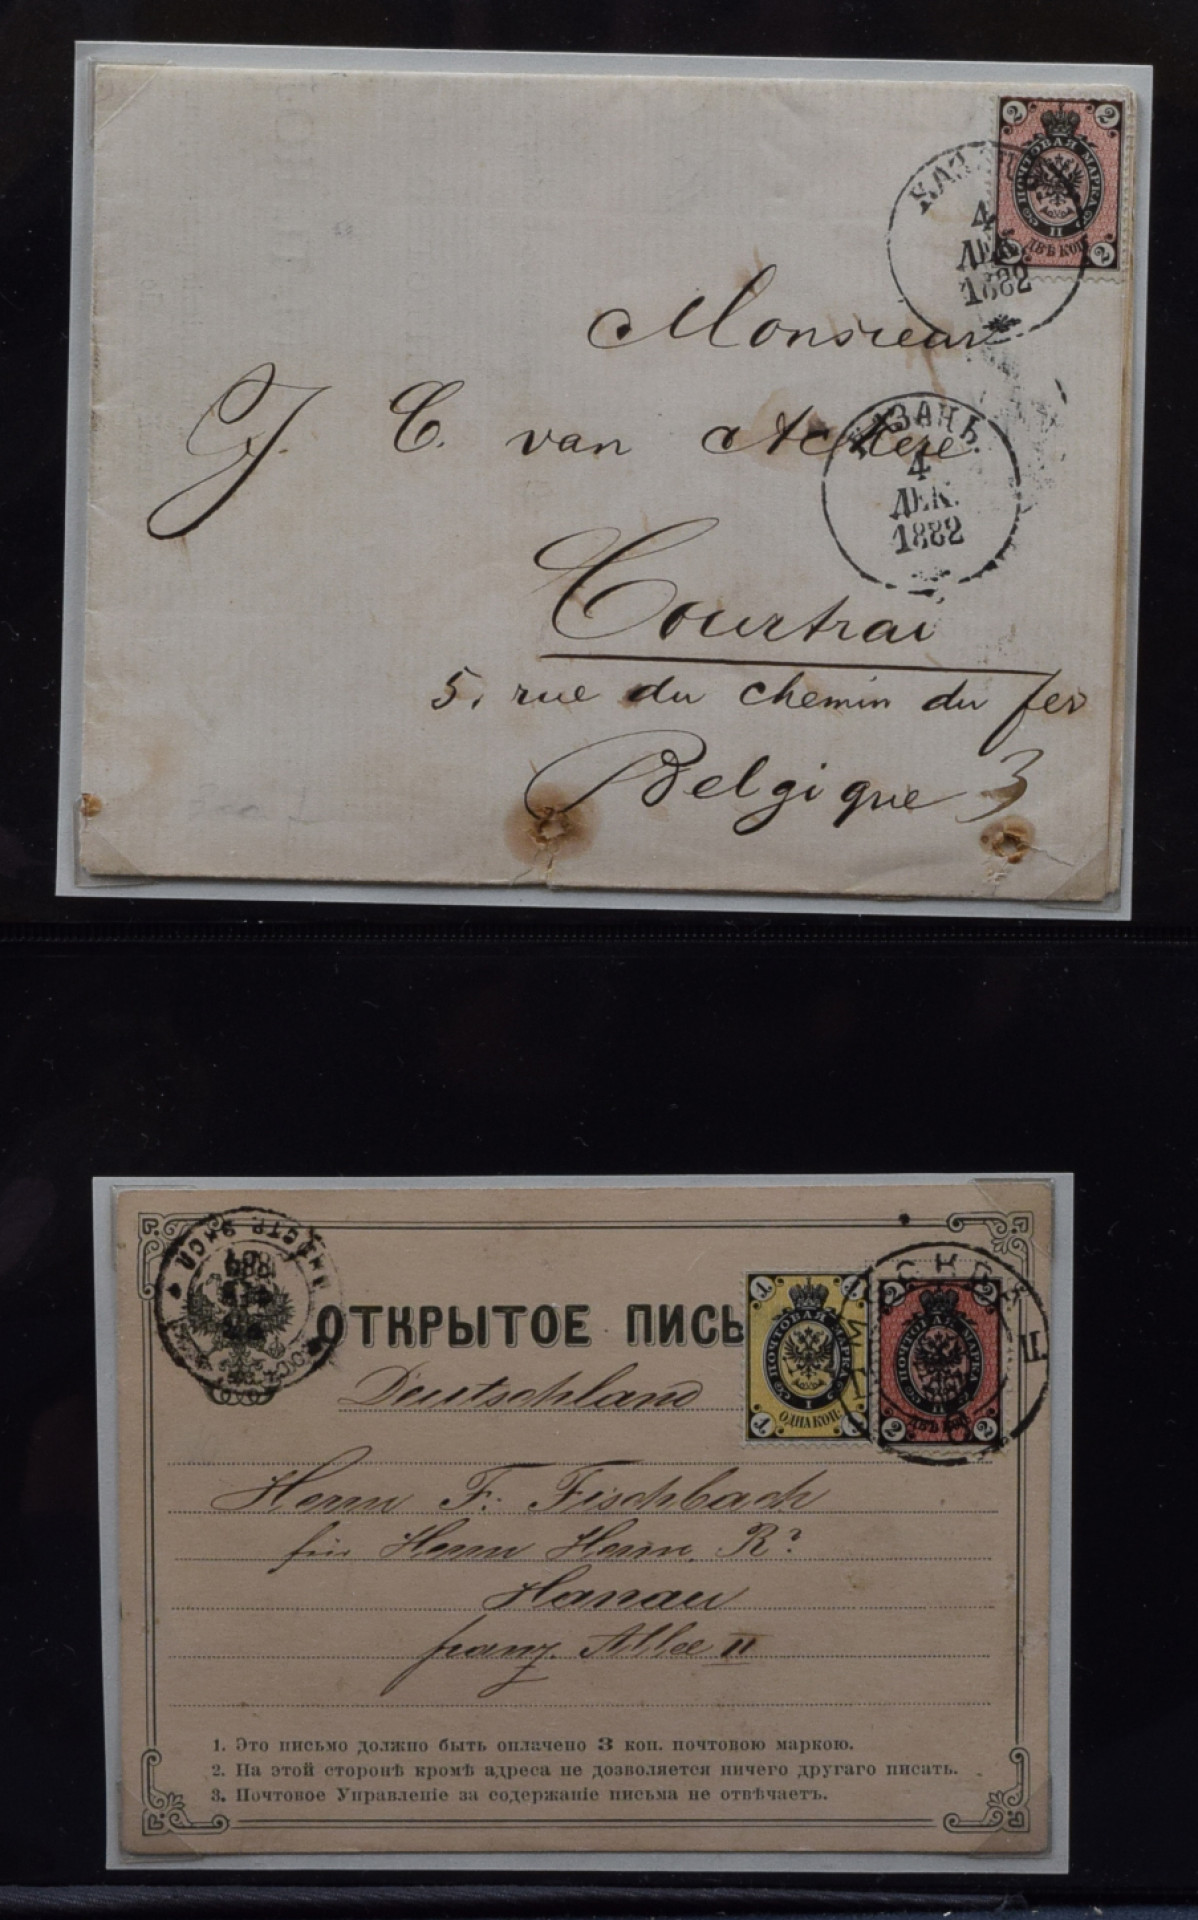 2 2
ПОЧТОВАЯ МАРКА
II
ДВѢ КОП.
2 2
4
ДЕК.
1882
Monsieur
J. C. van Ackere
КАЗАНЬ
4
ДЕК.
1882
Courtrai
5, rue du chemin du fer
Belgique 3
ОТКРЫТОЕ ПИСЬ
1 1
ПОЧТОВАЯ МАРКА
I
ОДНА КОП.
1 1
2 2
ПОЧТОВАЯ МАРКА
II
ДВѢ КОП.
2 2
II.
Deutschland
Herrn F. Fischbach
für Herrn Henn.
Hanau
franz. Allee II
1. Это письмо должно быть оплачено 3 коп. почтовою маркою.
2. На этой сторонѣ кромѣ адреса не дозволяется ничего другаго писать.
3. Почтовое Управленіе за содержаніе письма не отвѣчаетъ.